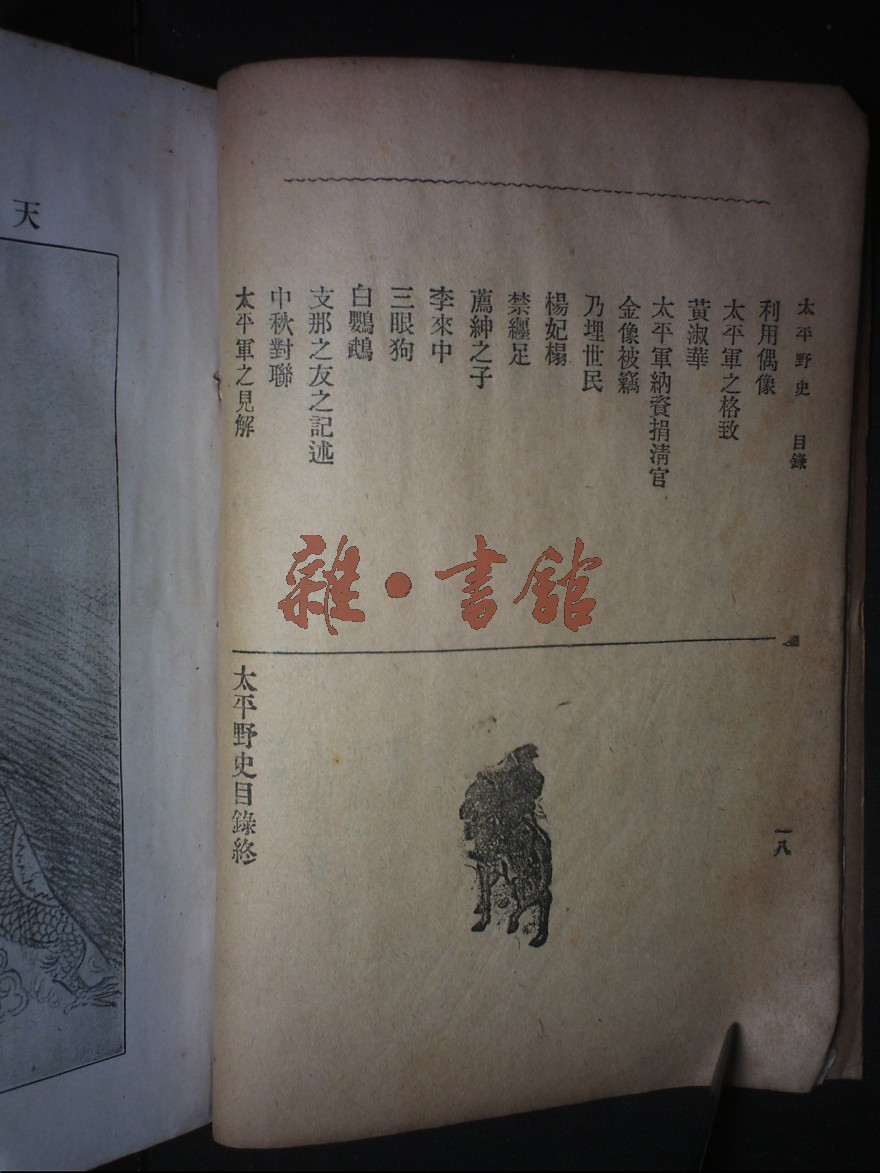 太平野史 目錄
利用偶像
太平軍之格致
黃淑華
太平軍納資捐淸官
金像被竊
乃埋世民
楊妃榻
禁纏足
薦紳之子
李來中
三眼狗
白鸚鵡
支那之友之記述
中秋對聯
太平軍之見解
一八
太平野史目錄終
雜·書館
天